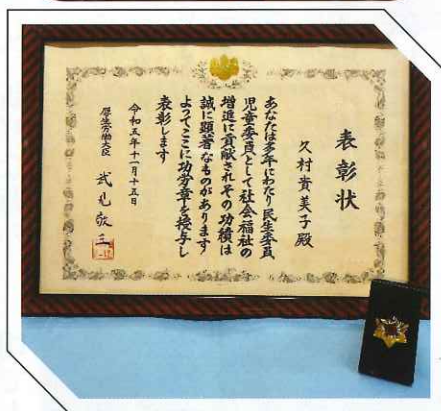 表彰状
久村貴美子殿
あなたは多年にわたり民生委員
児童委員として社会福祉の
増進に貢献されその功績は
誠に顕著なものがあります
よってここに功労章を授与し
表彰します
令和五年十一月十五日
厚生労働大臣 武見敬三